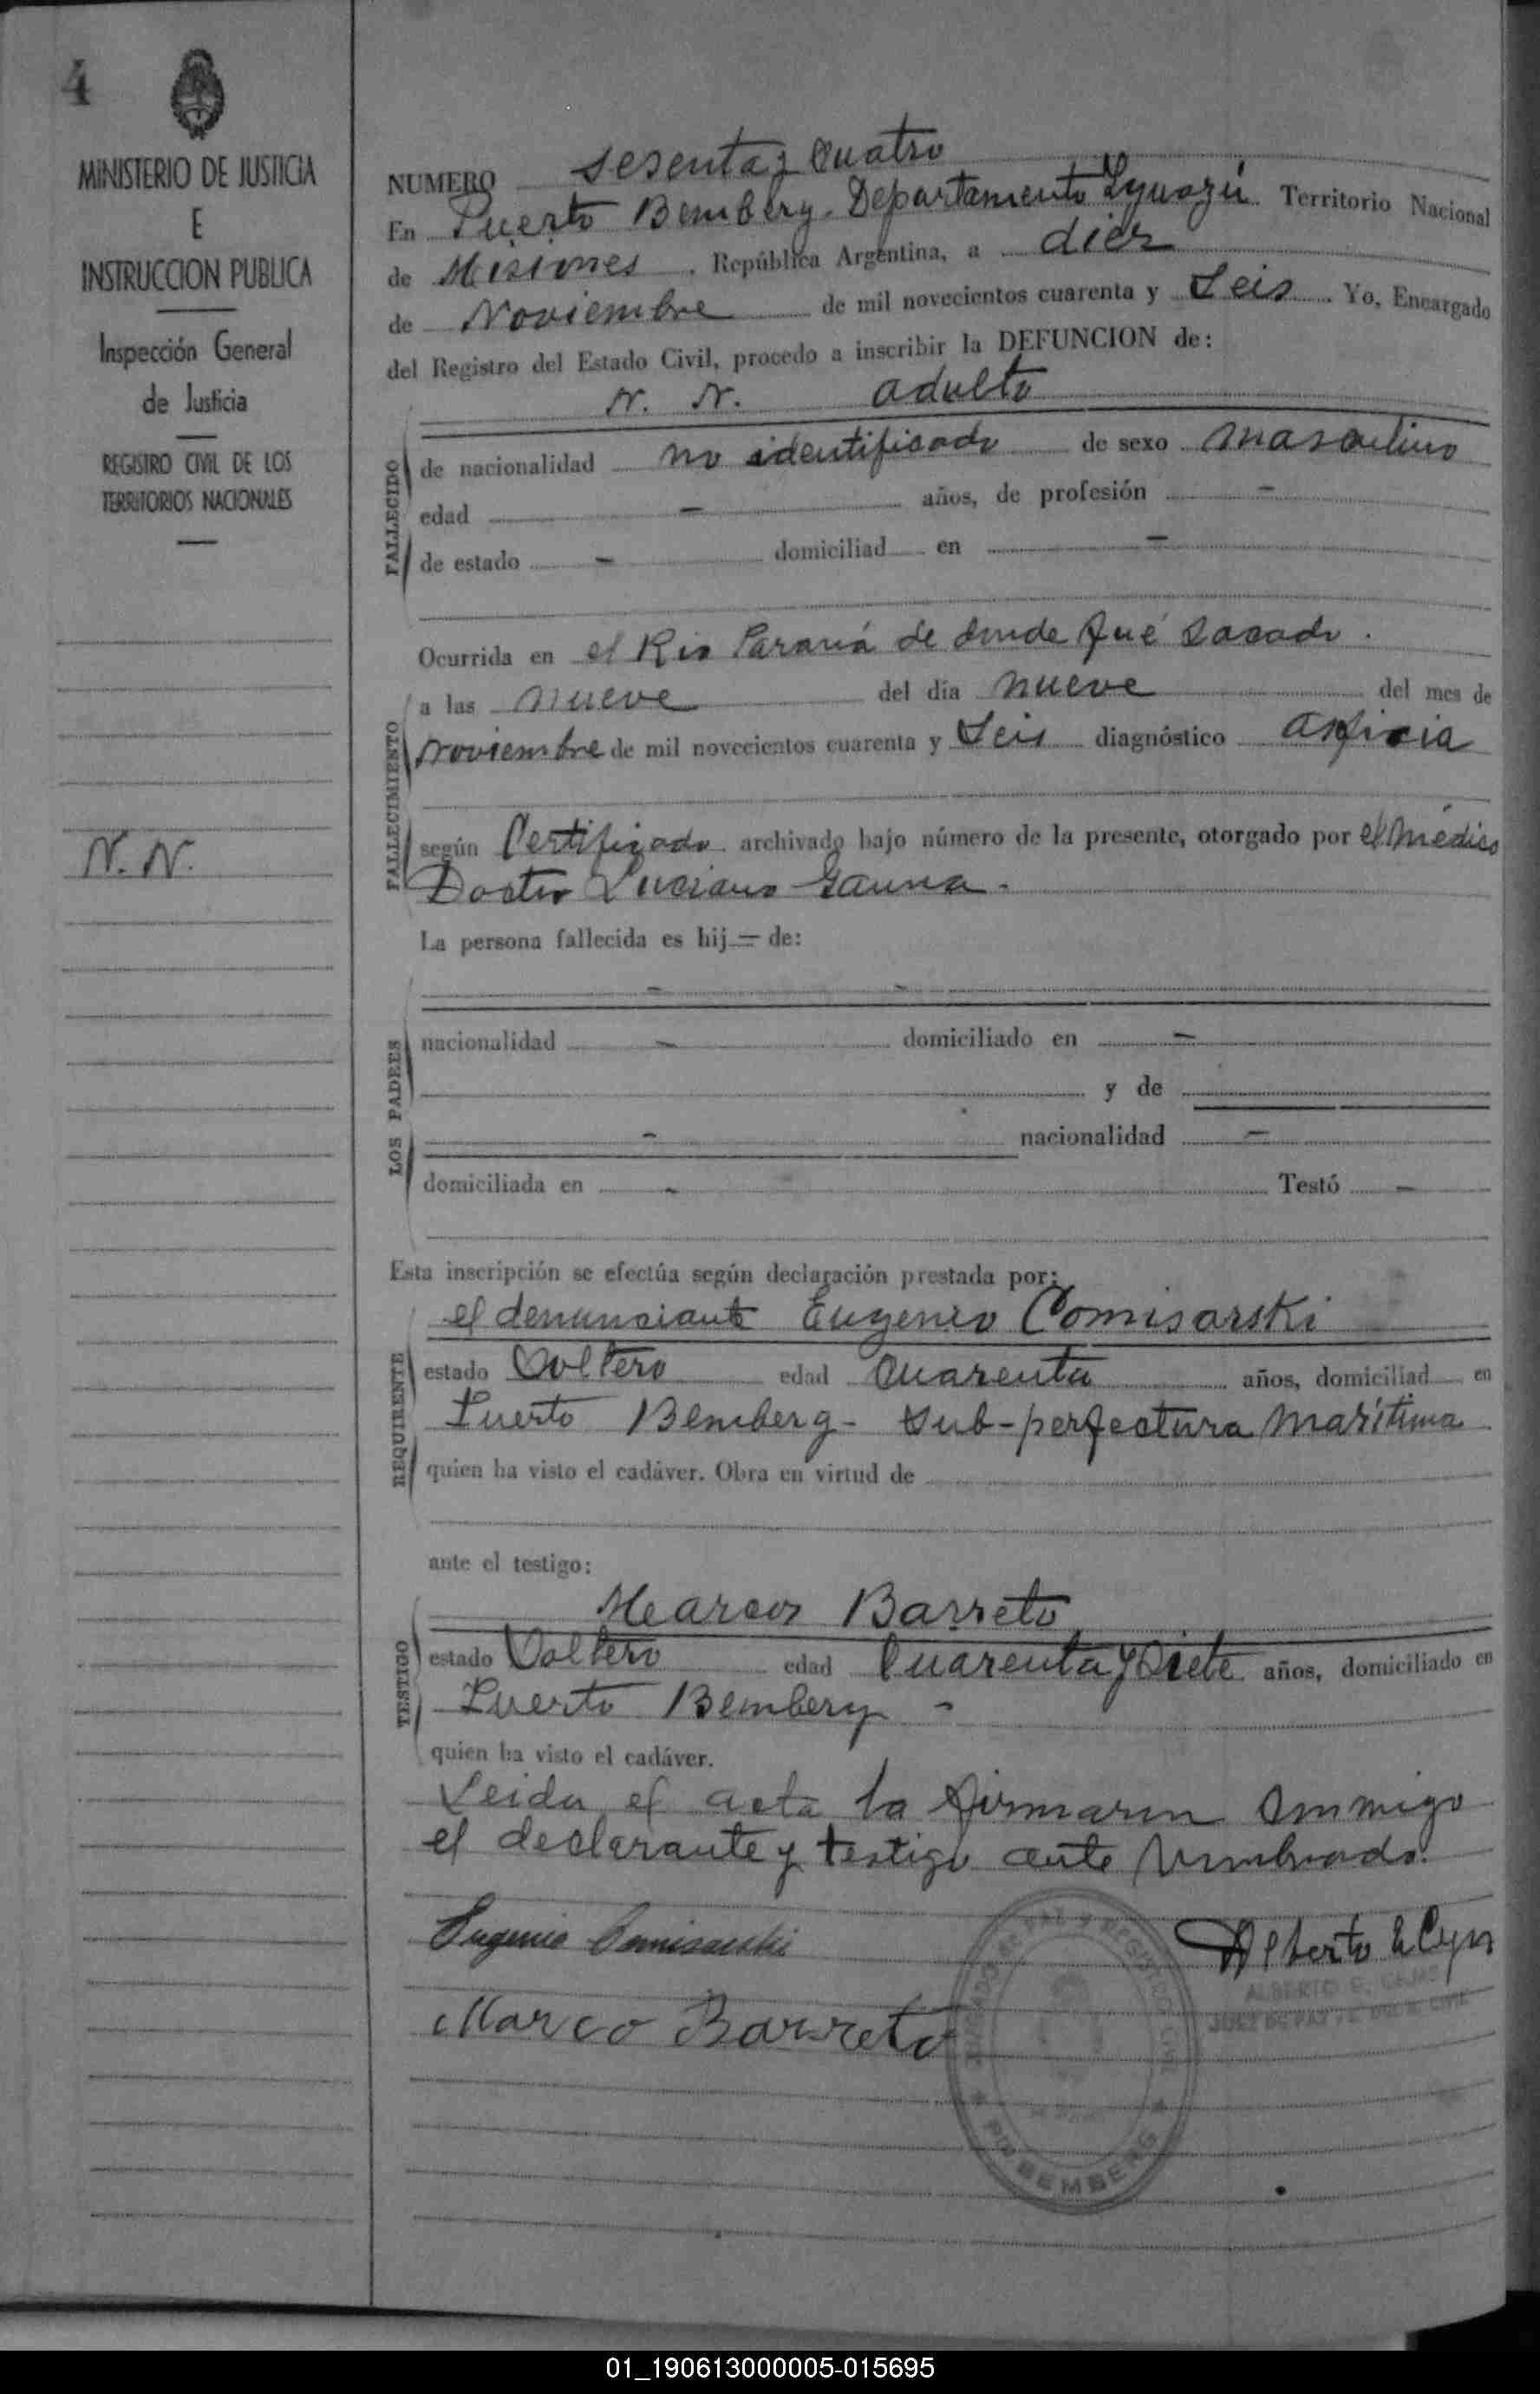 4
MINISTERIO DE JUSTICIA
E
INSTRUCCION PUBLICA
Inspección General
de Justicia
REGISTRO CIVIL DE LOS
TERRITORIOS NACIONALES
N. N.
NUMERO sesenta y cuatro
En Puerto Bemberg. Departamento Iguazú. Territorio Nacional
de Misiones. República Argentina, a diez
de Noviembre de mil novecientos cuarenta y Seis. Yo, Encargado
del Registro del Estado Civil, procedo a inscribir la DEFUNCION de:
N. N. adulto
FALLECIDO
de nacionalidad no identificado de sexo masculino
edad - años, de profesión -
de estado - domiciliad en -
Ocurrida en el Rio Paraná de donde fué sacado.
FALLECIMIENTO
a las nueve del día nueve del mes de
noviembre de mil novecientos cuarenta y Seis diagnóstico asfixia
según Certificado archivado bajo número de la presente, otorgado por el médico
Doctor Luciano Gauna.
La persona fallecida es hij = de:
- -
LOS PADRES
nacionalidad - domiciliado en -
y de
- nacionalidad -
domiciliada en - Testó -
Esta inscripción se efectúa según declaración prestada por:
el denunciante Eugenio Comisarski
REQUIRENTE
estado Soltero edad cuarenta años, domiciliad en
Puerto Bemberg - Sub-perfectura Marítima
quien ha visto el cadáver. Obra en virtud de
ante el testigo:
Marcos Barreto
TESTIGO
estado Soltero edad Cuarenta y Siete años, domiciliado en
Puerto Bemberg -
quien ha visto el cadáver.
Leida el acta la firmaron conmigo
el declarante y testigo ante nombrado.
Eugenio Comisarski
Alberto E.
ALBERTO E.
JUEZ DE PAZ
Marco Barreto
REGISTRO CIVIL
BEMBERG
01_190613000005-015695